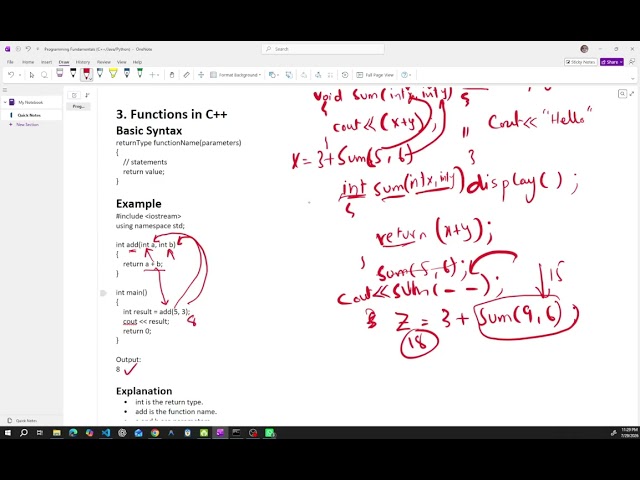 Programming Fundamentals (C++/Java/Python) - OneNote
Search
File Home Insert Draw History Review View Help
Sticky Notes Share
Format Background
Full Page View
My Notebook
Quick Notes
New Section
Prog...
3. Functions in C++
Basic Syntax
returnType functionName(parameters)
{
// statements
return value;
}
Example
#include <iostream>
using namespace std;
int add(int a, int b)
{
return a + b;
}
int main()
{
int result = add(5, 3);
cout << result;
return 0;
}
8
Output:
8
Explanation
• int is the return type.
• add is the function name.
void sum(int x, int y)
{
cout << (x+y);
}
{
cout << "Hello"
}
x = 3 + sum(5, 6)
int sum(int x, int y) display();
{
return (x+y);
}
sum(5, 6);
cout << sum(- -);
15
z = 3 + sum(9, 6)
18
Quick Notes
11:29 PM
7/29/2026